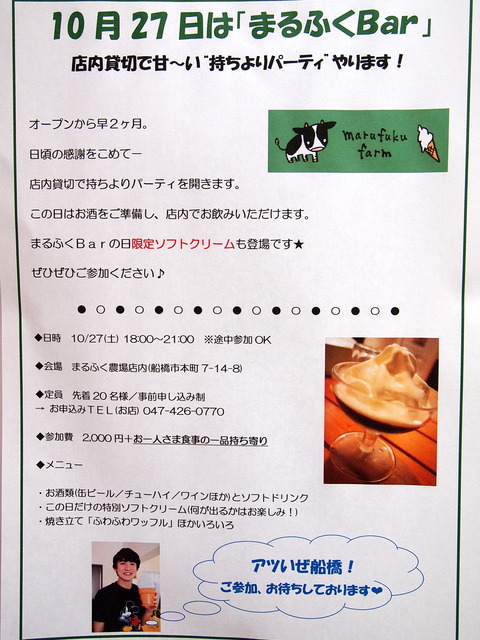 10月27日は「まるふくBar」
店内貸切で甘～い"持ちよりパーティ"やります！
オープンから早２ヶ月。
marufuku
farm
日頃の感謝をこめてー
店内貸切で持ちよりパーティを開きます。
この日はお酒をご準備し、店内でお飲みいただけます。
まるふくＢａｒの日限定ソフトクリームも登場です★
ぜひぜひご参加ください♪
●○●○●○●○●○●○●○●○●
◆日時　10/27(土) 18:00～21:00　※途中参加 OK
◆会場　まるふく農場店内(船橋市本町 7-14-8)
◆定員　先着 20 名様／事前申し込み制
→ お申込みＴＥＬ(お店) 047-426-0770
◆参加費　2,000 円＋お一人さま食事の一品持ち寄り
◆メニュー
・お酒類(缶ビール／チューハイ／ワインほか)とソフトドリンク
・この日だけの特別ソフトクリーム(何が出るかはお楽しみ！)
・焼き立て「ふわふわワッフル」ほかいろいろ
アツいぜ船橋！
ご参加、お待ちしております❤